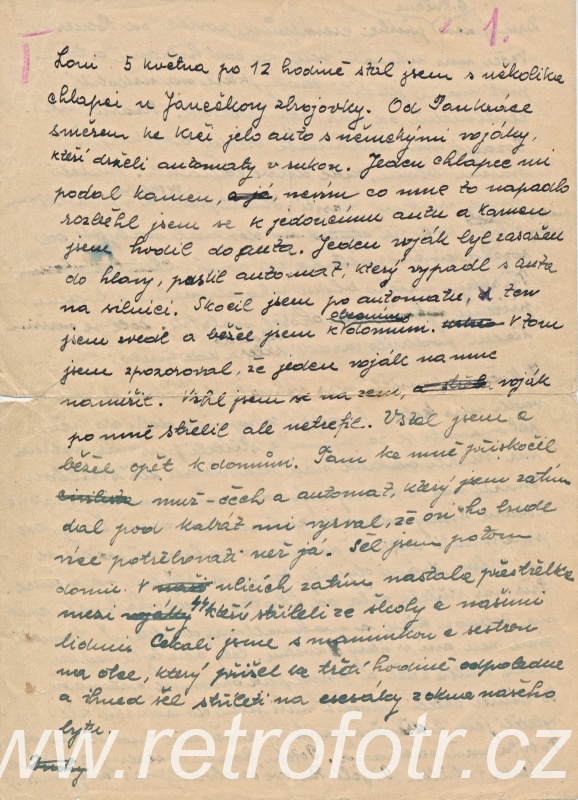 1.
Loni 5 května po 12 hodině stál jsem s několika
chlapci u Janečkovy zbrojovky. Od Pankráce
směrem ke Krči jelo auto s německými vojáky,
kteří drželi automaty v rukou. Jeden chlapec mi
podal kamen, a já, nevím co mne to napadlo
rozběhl jsem se k jedoucímu autu a kamen
jsem hodil do auta. Jeden voják byl zasažen
do hlavy, pustil automat, který vypadl s auta
na silnici. Skočil jsem po automatu, ten
jsem zvedl a běžel jsem k domům. V tom
jsem zpozoroval, že jeden voják na mne
namířil. Vrhl jsem se na zem, voják
po mně střelil ale netrefil. Vstal jsem a
běžel opět k domům. Tam ke mně přiskočil
muž-čech a automat, který jsem zatím
dal pod kabát mi vyrval, že on ho bude
více potřebovati než já. Šel jsem potom
domů. V ulicích zatím nastala přestřelka
mezi vojáky SS kteří stříleli ze školy a našimi
lidmi. Čekali jsme s maminkou a sestrou
na otce, který přišel ve třetí hodině odpoledne
a ihned šel stříleti na esesáky z okna našeho
bytu.
www.retrofotr.cz